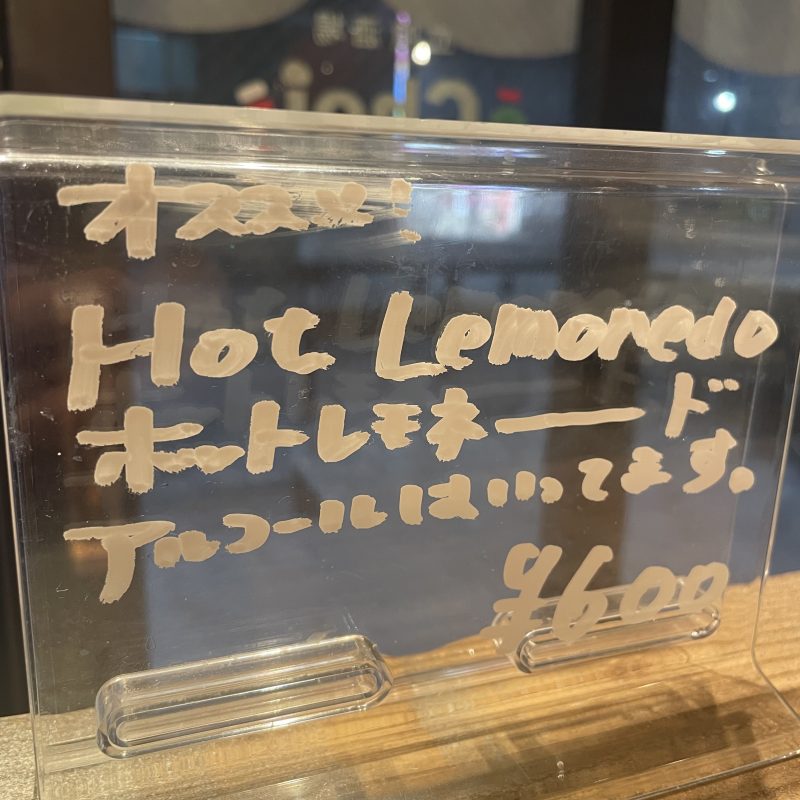 オススメ!
Hot Lemonedo
ホットレモネード
アルコールはいってます。
¥600